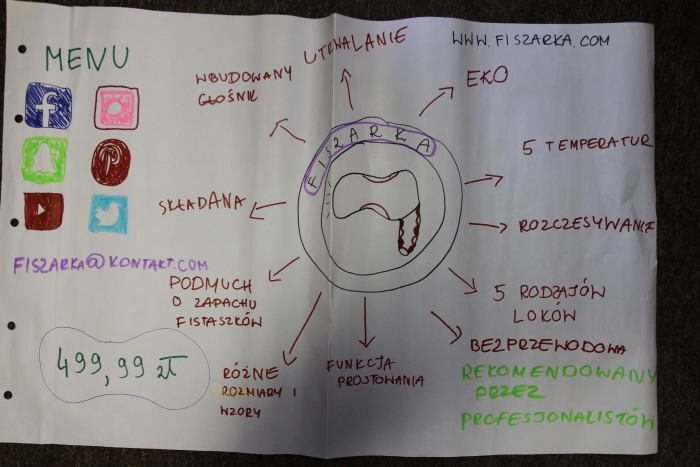 MENU
WWW.FISZARKA.COM
UTRWALANIE
WBUDOWANY
GŁOŚNIK
EKO
FISZARKA
5 TEMPERATUR
SKŁADANA
ROZCZESYWANIE
FISZARKA@KONTAKT.COM
PODMUCH
O ZAPACHU
FISTASZKÓW
5 RODZAJÓW
LOKÓW
BEZPRZEWODOWA
499,99 zł
RÓŻNE
ROZMIARY I
WZORY
FUNKCJA
PROSTOWANIA
REKOMENDOWANY
PRZEZ
PROFESJONALISTÓW